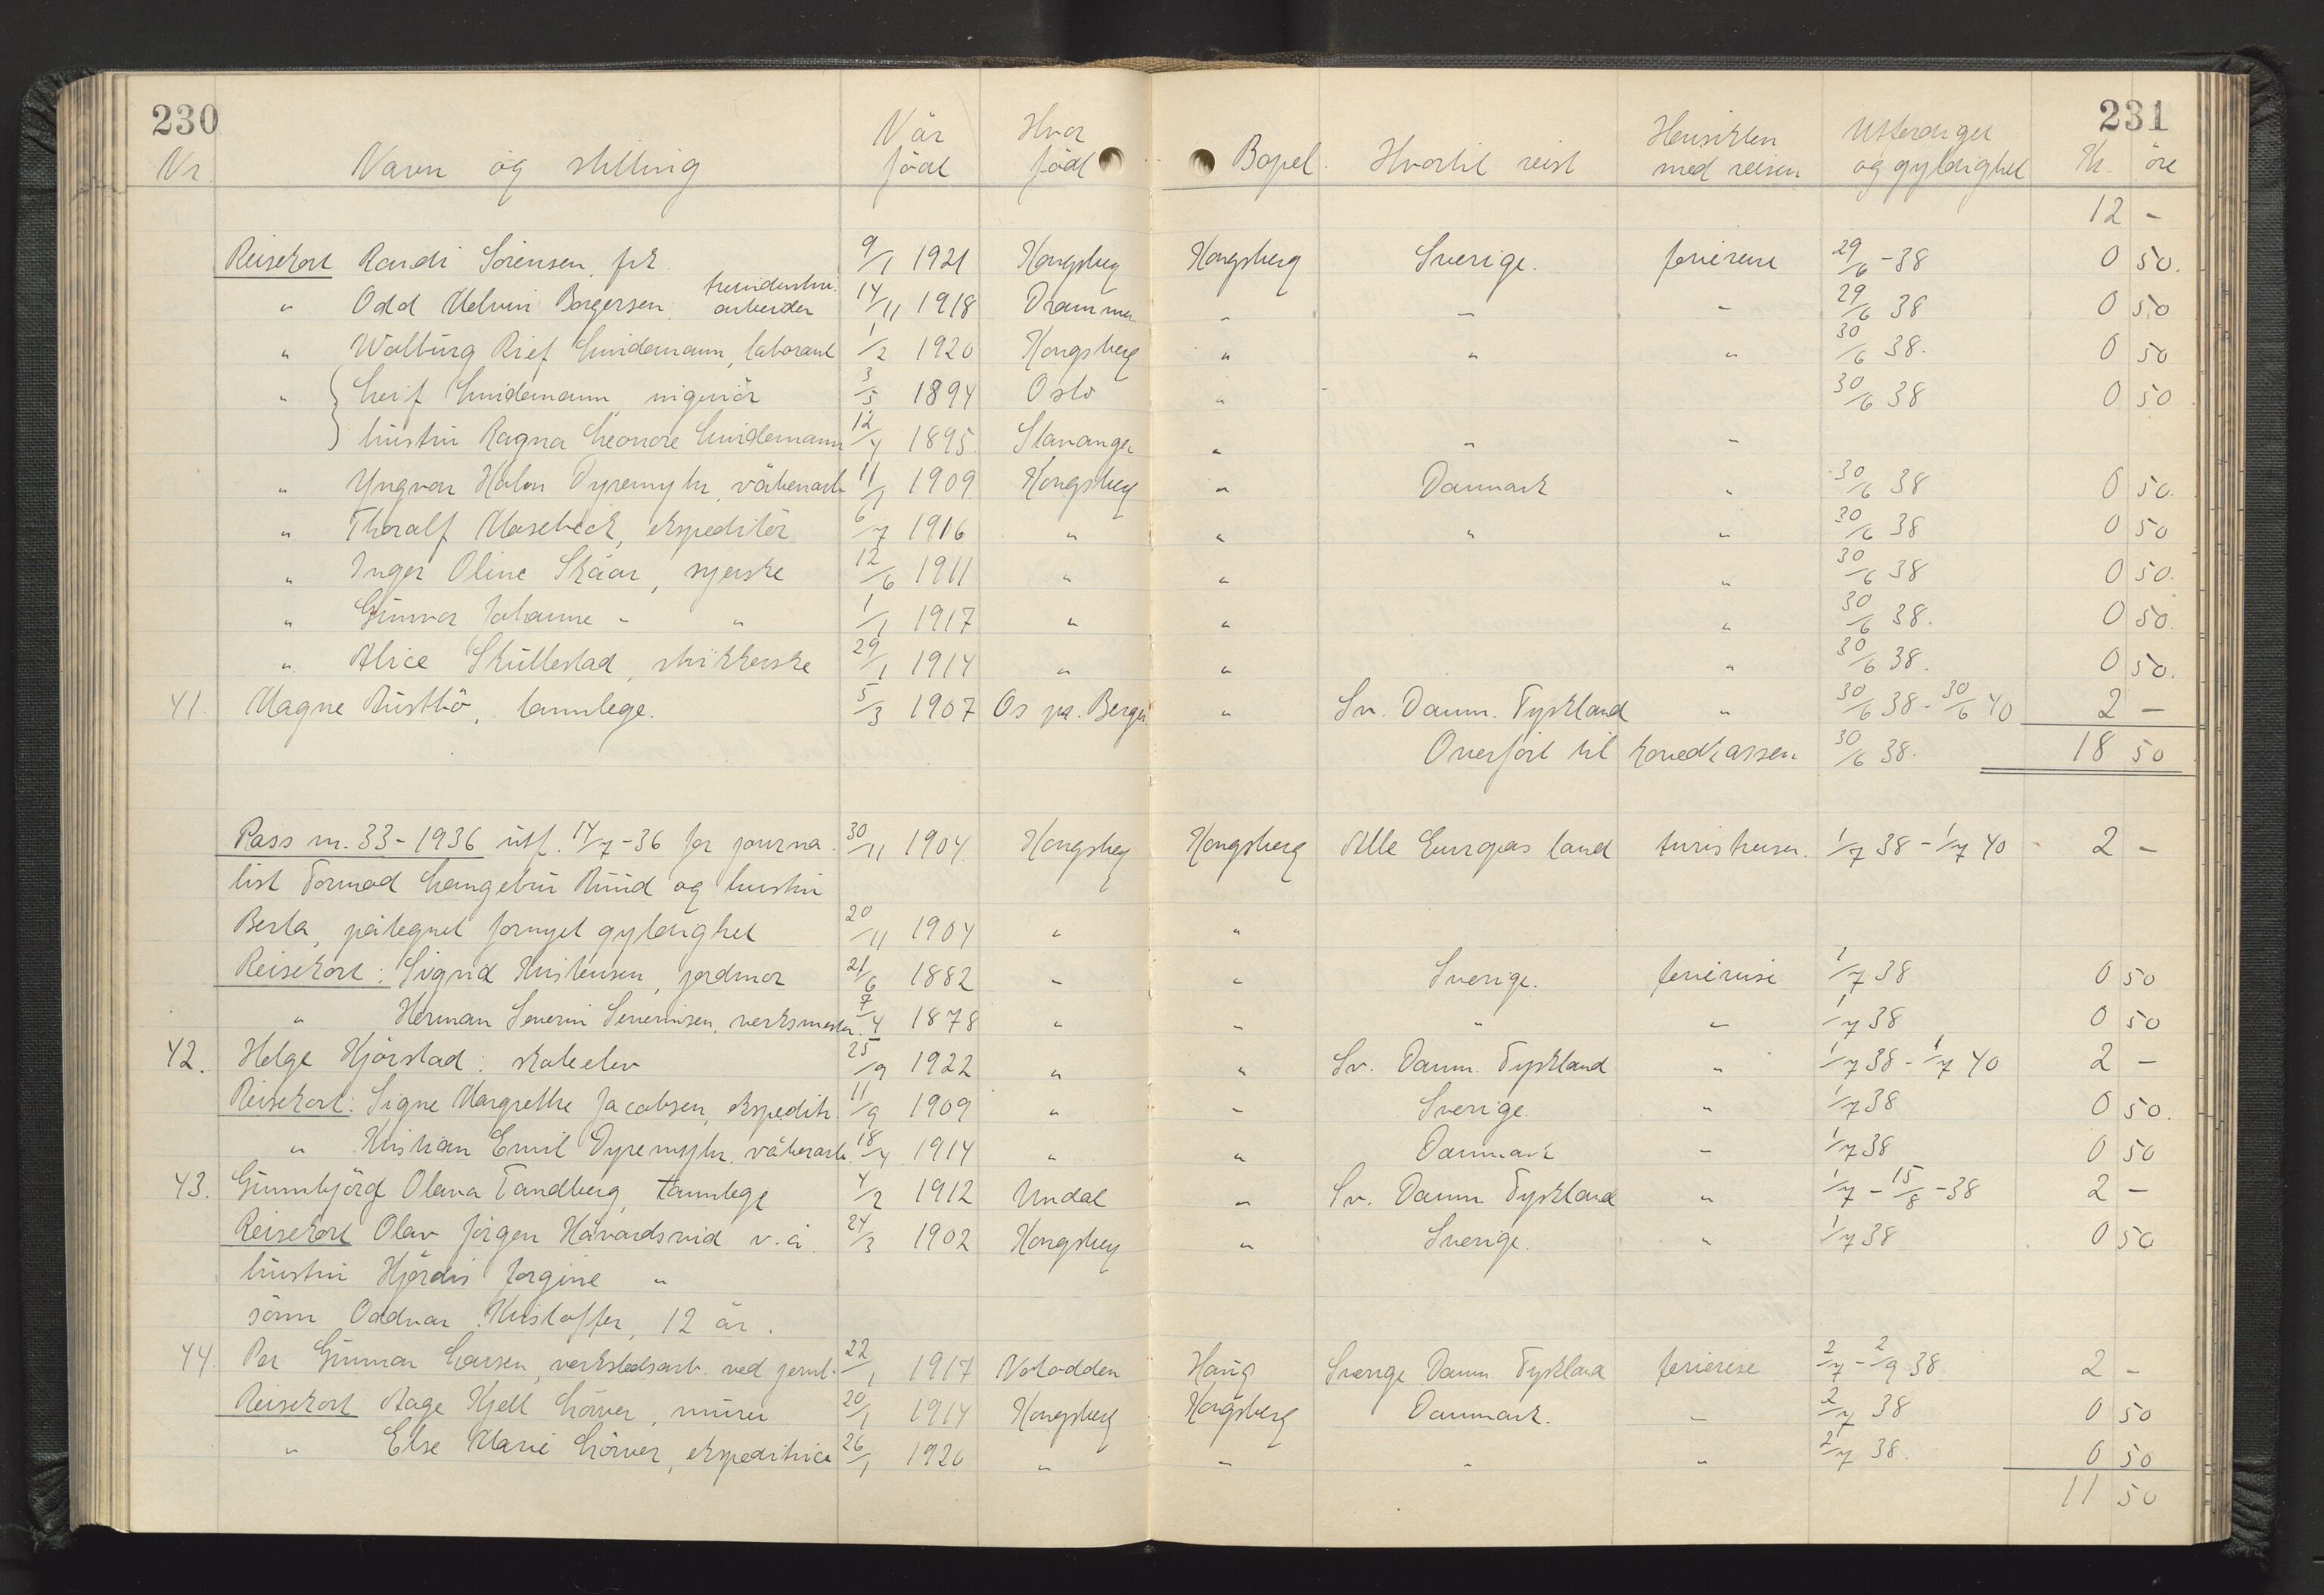 230 231
Nr. Navn og stilling Når født Hvor født Bopel. Hvortil reist Hensikten med reisen Utferdiget og gyldighet Kr. øre
12 -
Reisekort Randi Sörensen, frk. 9/1 1921 Kongsberg Kongsberg Sverige. feriereise 29/6 -38 0 50.
" Odd Melvin Borgersen, treindustri. arbeider 14/11 1918 Drammen " " " 29/6 38 0 50
" Walburg Rief Lindemann, laborant 1/2 1920 Kongsberg " " " 30/6 38. 0 50
" Leif Lindemann ingeniör 3/5 1894 Oslo " 30/6 38 0 50
hustru Ragna Leonore Lindemann 12/4 1895. Stavanger " " "
" Yngvar Holm Dyremyhr, våbenarb. 11/1 1909 Kongsberg " Danmark " 30/6 38 0 50.
" Thoralf Masebeck, ekspeditör 6/7 1916 " " " " 30/6 38 0 50
" Inger Oline Skåar, syerske 12/6 1911 " " " 30/6 38 0 50.
" Gunvor Johanne " " 1/1 1917 " " " 30/6 38. 0 50.
" Alice Skullestad, strikkerske 29/1 1914 " " " 30/6 38. 0 50.
41. Magne Rustbö, tannlege. 5/3 1907 Os pr. Bergen " Sv. Danm. Tyskland " 30/6 38 - 30/6 40 2 -
Overfört til hovedkassen 30/6 38. 18 50
Pass nr. 33-1936 utf. 14/7-36 for journa- 30/11 1904 Kongsberg Kongsberg Alle Europas land turistreiser. 1/7 38 - 1/7 40 2 -
list Tormod Langebru Ruud og hustru
Berta, påtegnet fornyet gyldighet 20/11 1904 " "
Reisekort: Sigrid Kristensen, jordmor 21/6 1882 " " Sverige. feriereise 1/7 38 0 50
" Herman Severin Severinsen, verksmester. 7/4 1878 " " " " 1/7 38 0 50
42. Helge Hjörstad: skoleelev 25/9 1922 " " Sv. Danm. Tyskland " 1/7 38 - 1/7 40 2 -
Reisekort: Signe Margrethe Jacobsen, ekspeditr. 11/9 1909 " " Sverige. " 1/7 38 0 50.
" Kristian Emil Dyremyhr. våbenarb. 18/4 1914 " " Danmark " 1/7 38 0 50
43. Gunnbjörg Olava Tandberg, tannlege 4/2 1912 Undal " Sv. Danm Tyskland " 1/7 - 15/8 -38 2 -
Reisekort Olav Jörgen Håvardsrud v.a. 24/3 1902 Kongsberg " Sverige. " 1/7 38 0 50
hustru Hjördis Jorgine "
sönn Oddvar Kristoffer, 12 år.
44. Per Gunnar Larsen, verkstedsarb. ved jernb. 22/1 1917 Notodden Haug Sverige Danm. Tyskland feriereise 2/7 - 2/9 38 2 -
Reisekort Aage Kjell Lörver, murer 20/1 1914 Kongsberg Kongsberg Danmark. " 2/7 38 0 50
" Else Marie Lörver, ekspeditrice 26/1 1920 " " " " 2/7 38. 0 50
11 50